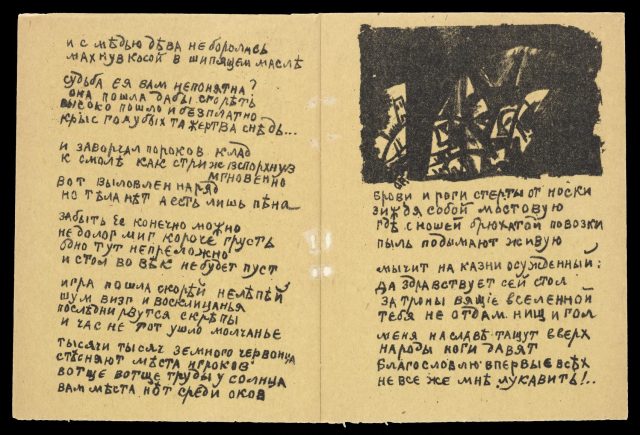 и с мѣдью дѣва не боролись
махнув косой в шипящем маслѣ
судьба ея вам непонятна?
она пошла дабы сгорѣть
высоко пошло и безплатно
крыс голубых та жертва снѣдь...
и заворчал пороков клад
к смолѣ как стриж вспорхнув
мгновенно
вот выловлен наряд
но тѣла нѣт а есть лишь пѣна
забыть ее конечно можно
недолог миг короче грусть
одно тут непреложно
и стол во вѣк не будет пуст
игра пошла скорѣй нелѣпѣй
шум визг и восклицанья
послѣдни рвутся скрѣпы
и час не тот ушло молчанье
тысячи тысяч земного червонца
стѣсняют мѣста игроков
вотще вотще труды у солнца
вам мѣста нѣт среди оков
брови и роги стерты от носки
зиждя собой мостовую
гдѣ с ношей брюхатой повозки
пыль подымают живую
мычит на казни осужденный:
да здравствует сей стол
за троны вящіе вселенной
тебя не отдам нищ и гол
меня на славѣ тащут вверх
народы ноги давят
благословлю впервые всѣх
не все же мнѣ лукавить!..